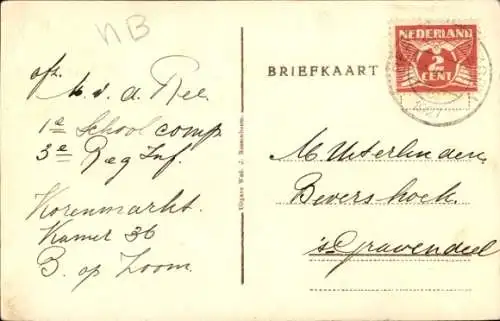 NB
afz.
M. v. d. Ree.
1e School comp
3e Reg Inf.
Korenmarkt.
Kamer 36
B. op Zoom.
Uitgave Wed. J. Rozenboom.
BRIEFKAART
NEDERLAND
2
CENT
1927
M Uiterlinden,
Bevershoek.
's Gravendeel